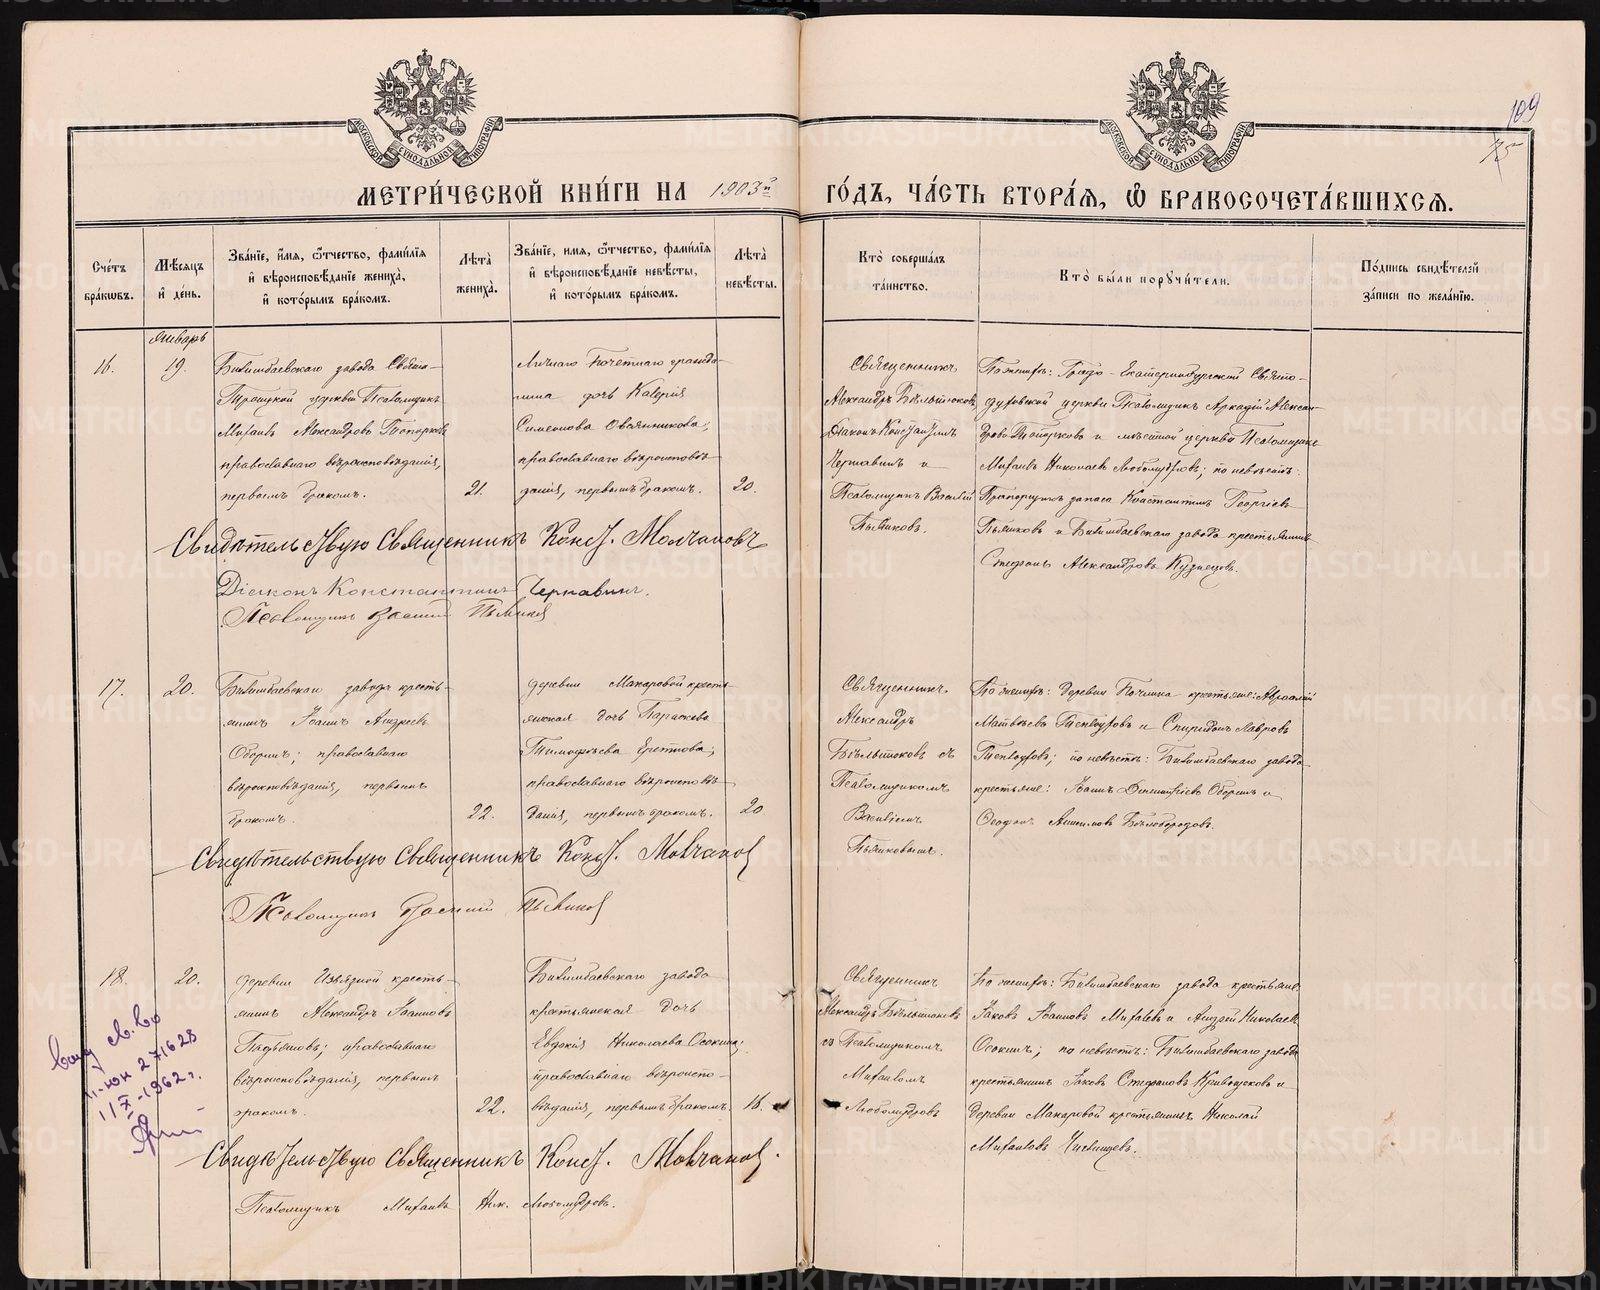 МЕТРИЧЕСКОЙ КНИГИ НА 1903й ГОДЪ, ЧАСТЬ ВТОРАЯ, Ѡ БРАКОСОЧЕТАВШИХСЯ.
109
75
МОСКОВСКОЙ СѴНОДАЛЬНОЙ ТИПОГРАФІИ
МОСКОВСКОЙ СѴНОДАЛЬНОЙ ТИПОГРАФІИ
Счетъ браковъ.
Мѣсяцъ и день.
Званіе, имя, ѿчество, фамилія и вѣроисповѣданіе жениха, и которымъ бракомъ.
Лѣта жениха.
Званіе, имя, ѿчество, фамилія и вѣроисповѣданіе невѣсты, и которымъ бракомъ.
Лѣта невѣсты.
Кто совершалъ таинство.
Кто были поручители.
Подпись свидѣтелей записи по желанію.
Январь
16.
19.
Билимбаевскаго завода Свято-
Троицкой церкви Псаломщикъ
Михаилъ Александровъ Топорковъ
православнаго вѣроисповѣданія,
первымъ бракомъ.
21.
Личнаго Почетнаго гражда-
нина дочь Калерія
Симеонова Овсянникова,
православнаго вѣроисповѣ-
данія, первымъ бракомъ.
20.
Священникъ
Александръ Бѣльтюковъ,
Діаконъ Константинъ
Чернавинъ и
Псаломщикъ Василій
Пьянковъ.
По женихѣ: Градо-Екатеринбургской Свято-
Духовской церкви Псаломщикъ Аркадій Алексан-
дровъ Топорковъ и мѣстной церкви Псаломщикъ
Михаилъ Николаевъ Любомудровъ; по невѣстѣ:
Прапорщикъ запаса Константинъ Георгіевъ
Пьянковъ и Билимбаевскаго завода крестьянинъ
Стефанъ Александровъ Кузнецовъ.
Свидѣтельствую Священникъ Конст. Молчановъ
Діаконъ Константинъ Чернавинъ.
Псаломщикъ Василій Пьянковъ
17.
20.
Билимбаевскаго завода кресть-
янинъ Іоаннъ Андреевъ
Оборинъ; православнаго
вѣроисповѣданія, первымъ
бракомъ.
22.
деревни Макаровой кресть-
янская дочь Параскева
Тимофѣева
православнаго вѣроисповѣ-
данія, первымъ бракомъ.
20
Священникъ
Александръ
Бѣльтюковъ съ
Псаломщикомъ
Василіемъ
Пьянковымъ.
По женихѣ: деревни Починка крестьяне: Авраамій
Матвѣевъ и Спиридонъ Лавровъ
по невѣстѣ: Билимбаевскаго завода
крестьяне: Іоаннъ Димитріевъ Оборинъ и
Ѳеодоръ Бѣлобородовъ.
Свидѣтельствую Священникъ Конст. Молчановъ
Псаломщикъ Василій Пьянковъ
18.
20.
деревни Извѣздной кресть-
янинъ Александръ Іоанновъ
православнаго
вѣроисповѣданія, первымъ
бракомъ.
22.
Билимбаевскаго завода
крестьянская дочь
Евдокія Николаева Осокина;
православнаго вѣроиспо-
вѣданія, первымъ бракомъ.
16.
Священникъ
Александръ Бѣльтюковъ
съ Псаломщикомъ
Михаиломъ
Любомудровъ
По женихѣ: Билимбаевскаго завода крестьяне:
Іаковъ Іоанновъ Михалевъ и Андрей Николаевъ
Осокинъ; по невѣстѣ: Билимбаевскаго завода
крестьянинъ Іаковъ Стефановъ Кривощековъ и
деревни Макаровой крестьянинъ Николай
Михаиловъ Чистищевъ.
Свидѣтельствую Священникъ Конст. Молчановъ.
Псаломщикъ Михаилъ Ник. Любомудровъ.
св. во
II-юн 271628
11/X-1962 г.
METRIKI.GASO-URAL.RU